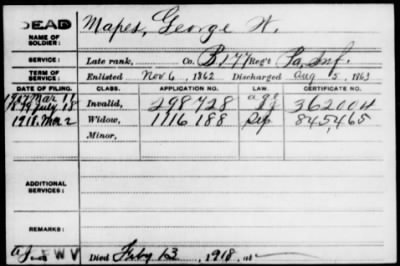 DEAD
NAME OF SOLDIER: Mapes, George W.
SERVICE: Late rank, Co. B 177 Reg't Pa. Inf.
TERM OF SERVICE: Enlisted Nov 6, 1862 Discharged Aug 5, 1863
DATE OF FILING. CLASS. APPLICATION NO. LAW. CERTIFICATE NO.
1879 July 18 Invalid, 298728 362004
1918. Mar 2 Widow, 1116188 845,465
Minor,
ADDITIONAL SERVICES:
REMARKS:
Died Feby 13, 1918, at